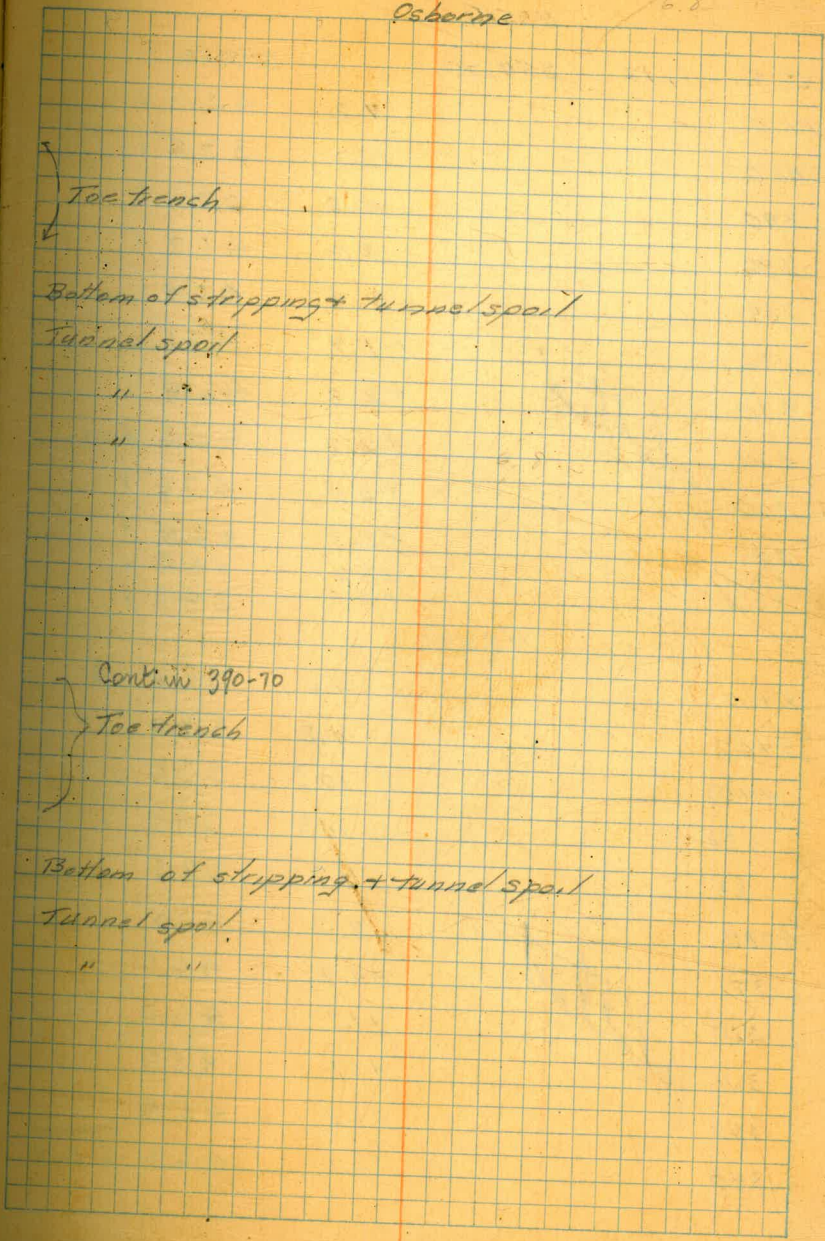 Osborne
Toe trench
Bottom of stripping + tunnel spoil
Tunnel spoil
"
"
Cont. in 390-70
Toe trench
Bottom of stripping + tunnel spoil
Tunnel spoil
" "